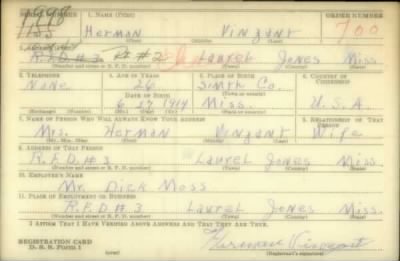 SERIAL NUMBER 1. NAME (Print) ORDER NUMBER
Herman Vinzant 700
R.F.D # 3 Laurel Jones Miss.
(Number and street or R. F. D. number) (Town) (County) (State)
3. TELEPHONE 4. AGE IN YEARS 5. PLACE OF BIRTH 6. COUNTRY OF CITIZENSHIP
None 26 Smith Co.
DATE OF BIRTH (Town or county)
6 27 1914 Miss. U.S.A.
(Exchange) (Number) (Mo.) (Day) (Yr.) (State or country)
7. NAME OF PERSON WHO WILL ALWAYS KNOW YOUR ADDRESS 8. RELATIONSHIP OF THAT PERSON
Mrs. Herman Vinzant Wife
(Mr., Mrs., Miss) (First) (Middle) (Last)
9. ADDRESS OF THAT PERSON
R.F.D # 3 Laurel Jones Miss.
(Number and street or R. F. D. number) (Town) (County) (State)
10. EMPLOYER'S NAME
Mr. Dick Moss
11. PLACE OF EMPLOYMENT OR BUSINESS
R.F.D # 3 Laurel Jones Miss.
(Number and street or R. F. D. number) (Town) (County) (State)
I AFFIRM THAT I HAVE VERIFIED ABOVE ANSWERS AND THAT THEY ARE TRUE.
REGISTRATION CARD
D. S. S. Form 1 Herman Vinzant